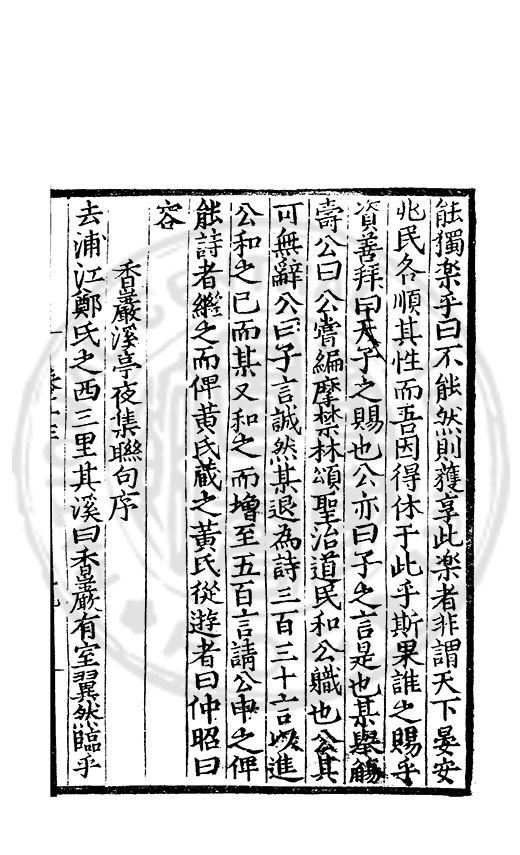 能獨樂乎曰不能然則獲享此樂者非謂天下晏安
兆民各順其性而吾因得休于此乎斯果誰之賜乎
資善拜曰天子之賜也公亦曰子之言是也某舉觴
壽公曰公嘗編摩禁林頌聖治道民和公職也公其
可無辭公曰子言誠然某退為詩三百三十言以進
公和之已而某又和之而增至五百言請公申之俾
能詩者繼之而俾黃氏藏之黃氏從遊者曰仲昭曰
容
香巖溪亭夜集聯句序
去浦江鄭氏之西三里其溪曰香巖有室翼然臨乎